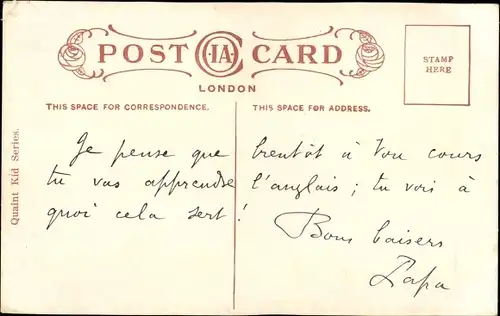 POST CARD
LONDON
THIS SPACE FOR CORRESPONDENCE.
THIS SPACE FOR ADDRESS.
STAMP
HERE
Quaint Kid Series.
Je pense que bientôt à ton cours
tu vas apprendre l'anglais ; tu vois à
quoi cela sert !
Bons baisers
Papa